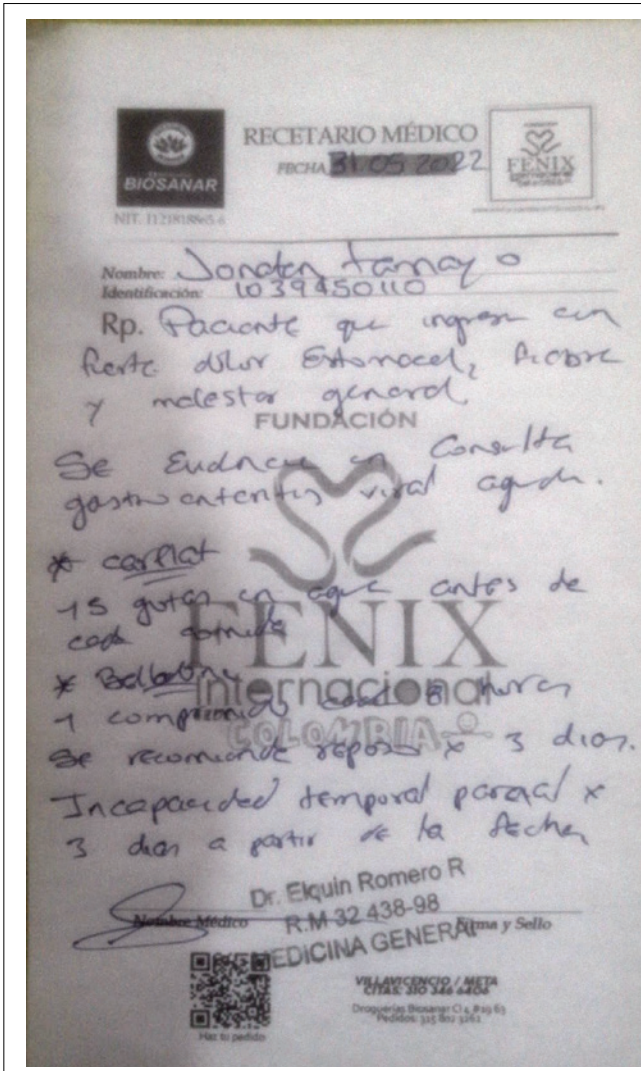 BIOSANAR
NIT. 1121818865.6
RECETARIO MÉDICO
FECHA 31.05 2022
FENIX
Nombre: Jonatan Tamayo
Identificación: 1039450110
Rp. Paciente que ingresa con
fuerte dolor Estomacal, fiebre
y malestar general.
FUNDACIÓN
Se Evidencia en Consulta
gastroenteritis viral aguda.
* carflat
15 gotas en agua antes de
cada comida
FENIX
*
Internacional
1 comprimido cada 8 horas
COLOMBIA
Se recomienda reposo x 3 dias.
Incapacidad temporal parcial x
3 dias a partir de la fecha
Dr. Elquin Romero R
Nombre Médico
R.M 32 438-98
Firma y Sello
MEDICINA GENERAL
VILLAVICENCIO / META
CITAS: 310 346 6406
Droguerías Biosanar Cl 4 #19 63
Pedidos: 315 802 3262
Haz tu pedido